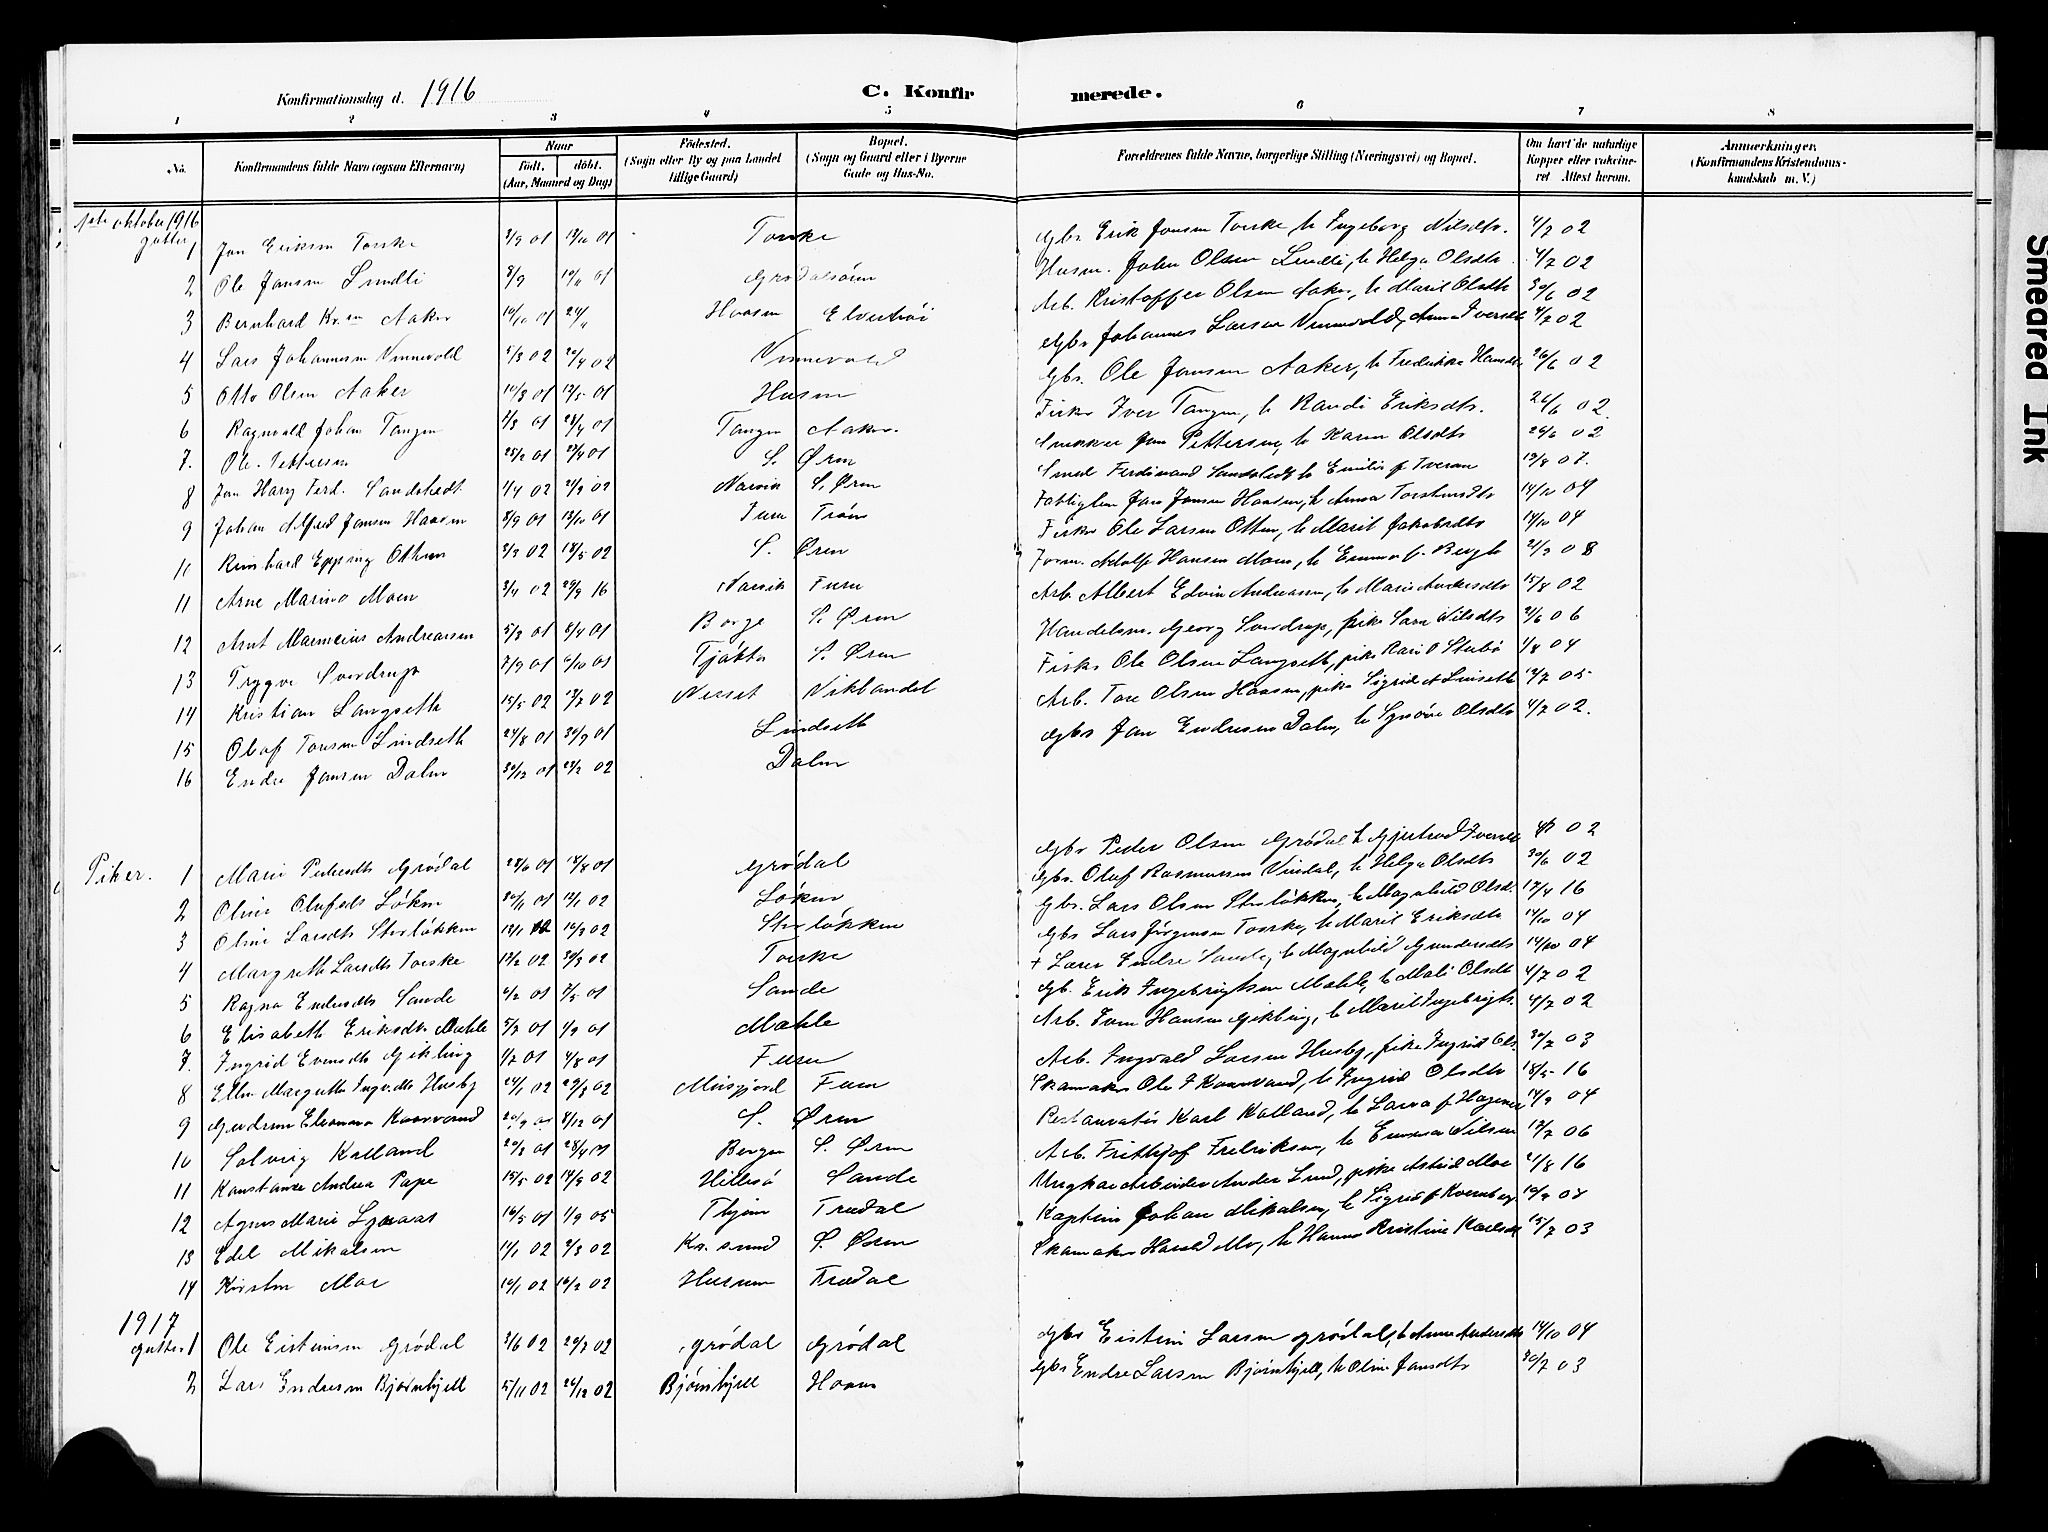 Konfirmationsdag d. 1916 C. Konfirmerede.
1 2 3 4 5 6 7 8
No. Konfirmandens fulde Navn (ogsaa Efternavn) Naar født. døbt. (Aar, Maaned og Dag) Fødested. (Sogn eller By og paa Landet tillige Gaard) Bopæl. (Sogn og Gaard eller i Byerne Gade og Hus-No. Forældrenes fulde Navne, borgerlige Stilling (Næringsvei) og Bopæl. Om havt de naturlige Kopper eller vaksineret Attest herom. Anmærkninger. (Konfirmandens Kristendomskundskab m. V.)
1ste oktober 1916
gutter 1 Jon Eriksen Torske 01 01 Torske Gbr. Erik Jonsen Torske, h. Ingeborg Nilsdtr. 4/7 02
2 Ole Jonsen Lundli 8/9 01 Grødalsøien Husm. John Olsen Lundli, h. Helga Olsdtr. 4/7 02
3 Bernhard Kr.sen Aaker 01 Haasen Elverhøi Arb. Kristoffer Olsen Aaker, h. Marit Olsdtr 30/6 02
4 Lars Johannesen Vinnevold 5/3 02 20/4 02 Vinnevold Gbr. Johannes Larsen Vinnevold, Anna Iversdtr 4/7 02
5 Otto Olsen Aaker 14/3 01 12/5 01 Husm Gbr. Ole Jonsen Aaker, h. Fredrikke Hansdtr 26/6 02
6 Ragnvald Johan Tangen 01 28/4 01 Tangen Aaker. Fisker Iver Tangen, h. Randi Eriksdtr. 26/6 02.
7. Ole Pettersen 25/2 01 01 S. Øren Snekker Pettersen, h. Karen Olsdtr 26/6 02
8 Jon Harry Ferd. Sandstedt 1/4 02 02 Narvik S. Øren Smed Ferdinand Sandstedt h. Emilie f. Tveran 07.
9 Johan Alfred Jonsen Haasen 8/9 01 13/10 01 Furu Trøen Fattiglem Jon Jonsen Haasen, h. Anna 14/12 04
10 Reinhard Epping Ottem 02 18/5 02 S. Øren Fisker Ole Larsen Ottem, h. Marit Jakobsdtr 14/10 04
11 Arne Marino Moen 3/4 02 29/9 16 Narvik Furu Form. Adolf Hansen Moen, h. Emma f. Bergh 08
12 Arnt Marinius Andreassen 5/3 01 8/4 01 Borge S. Øren Arb. Albert Edvin Andreassen, h. Marie Andersdtr 15/8 02
13 Trygve Sverdrup 7/9 01 6/10 01 Tjøtta S. Øren Handelsm. Georg Sverdrup, pike Sara Nilsdtr 06
14 Kristian Langseth 15/5 02 13/7 02 Nesset Vikbandet Fisker Ole Olsen Langseth, pike Kari O Stubø 1/8 04
15 Olaf Toresen Lindseth 24/8 01 30/9 01 Lindseth Arb. Tore Olsen Haasen, pike Sigrid A Linseth 14/7 05
16 Endre Jonsen Dalen 30/12 01 23/2 02 Dalen Gbr Jon Endresen Dalen, h. Synøve Olsdtr 4/7 02.
Piker. 1 Marie Pedersdtr Grødal 28/6 01 18/8 01 Grødal Gbr Peder Olsen Grødal h. Gjertrud Iversdtr 02
2 Oline Olufsdtr Løken 30/11 01 12/1 02 Løken Gbr. Oluf Rasmussen Vindal, h. Helga Olsdtr 30/6 02
3 Oline Larsdtr Storløkken 02 Storløkken Gbr. Lars Olsen Storløkken, h. Magnhild Olsdtr 17/4 16
4 Margreth Larsdtr Torske 12/2 02 30/3 02 Torske Gbr Lars Jørgensen Torske, h. Marit Eriksdtr 14/10 04
5 Ragna Endresdtr Sande 01 01 Sande + Lærer Endre Sande, h. Magnhild Gundersdtr 14/10 04
6 Elisabeth Eriksdtr Mæhle 01 01 Mæhle Gb. Erik Ingebrigtsen Mæhle, h. Mali Olsdtr 4/7 02
7. Ingrid Evensdtr Gikling 1/7 01 4/8 01 Furu Arb. Even Hansen Gikling, h. Marit Ingebrigts. 4/7 02
8 Ellen Margrethe Ingv.dtr Husby 24/1 02 02 Misfjord Furu Arb. Ingvald Larsen Husby, pike Ingrid Ols. 30/7 03
9 Gudrun Eleonora Kaarvand 01 8/12 01 S. Øren Skomaker Ole I Kaarvand, h. Ingrid Olsdtr 18/5 16
10 Solveig Kalland 01 28/4 01 Bergen S. Øren Restauratør Karl Kalland, h. Laura f. Hagenes 04
11 Konstanse Andrea Pape 15/5 02 02 Hillesø Sande Arb. Frithjof Fredriksen, h. Emma Nilsen 17/7 06
12 Agnes Marie Lynaas 16/5 01 1/9 05 Thjøm Trædal Ungkar Arbeider Ander Lund, pike Astrid Moe 21/8 16
13 Edel Mikalsen 11/1 02 2/3 02 Kr.sund S. Øren Kaptein Johan Mikalsen, h. Sigrid f. Kvernberg
14 Kirsten Moe 10/1 02 16/2 02 Husum Trædal Skomaker Harald Mo, h. Hanna Kristine Karlsdtr 15/7 03
1917
gutter 1 Ole Eistensen Grødal 3/6 02 20/7 02 Grødal Grødal Gbr Eistein Larsen Grødal, h. Anne Andersdtr 14/10 04
2 Lars Endresen Bjørnhjell 5/11 02 26/12 02 Bjørnhjell Hoaas Gbr Endre Larsen Bjørnhjell, h. Oline Jonsdtr 30/7 03
Smeared Ink